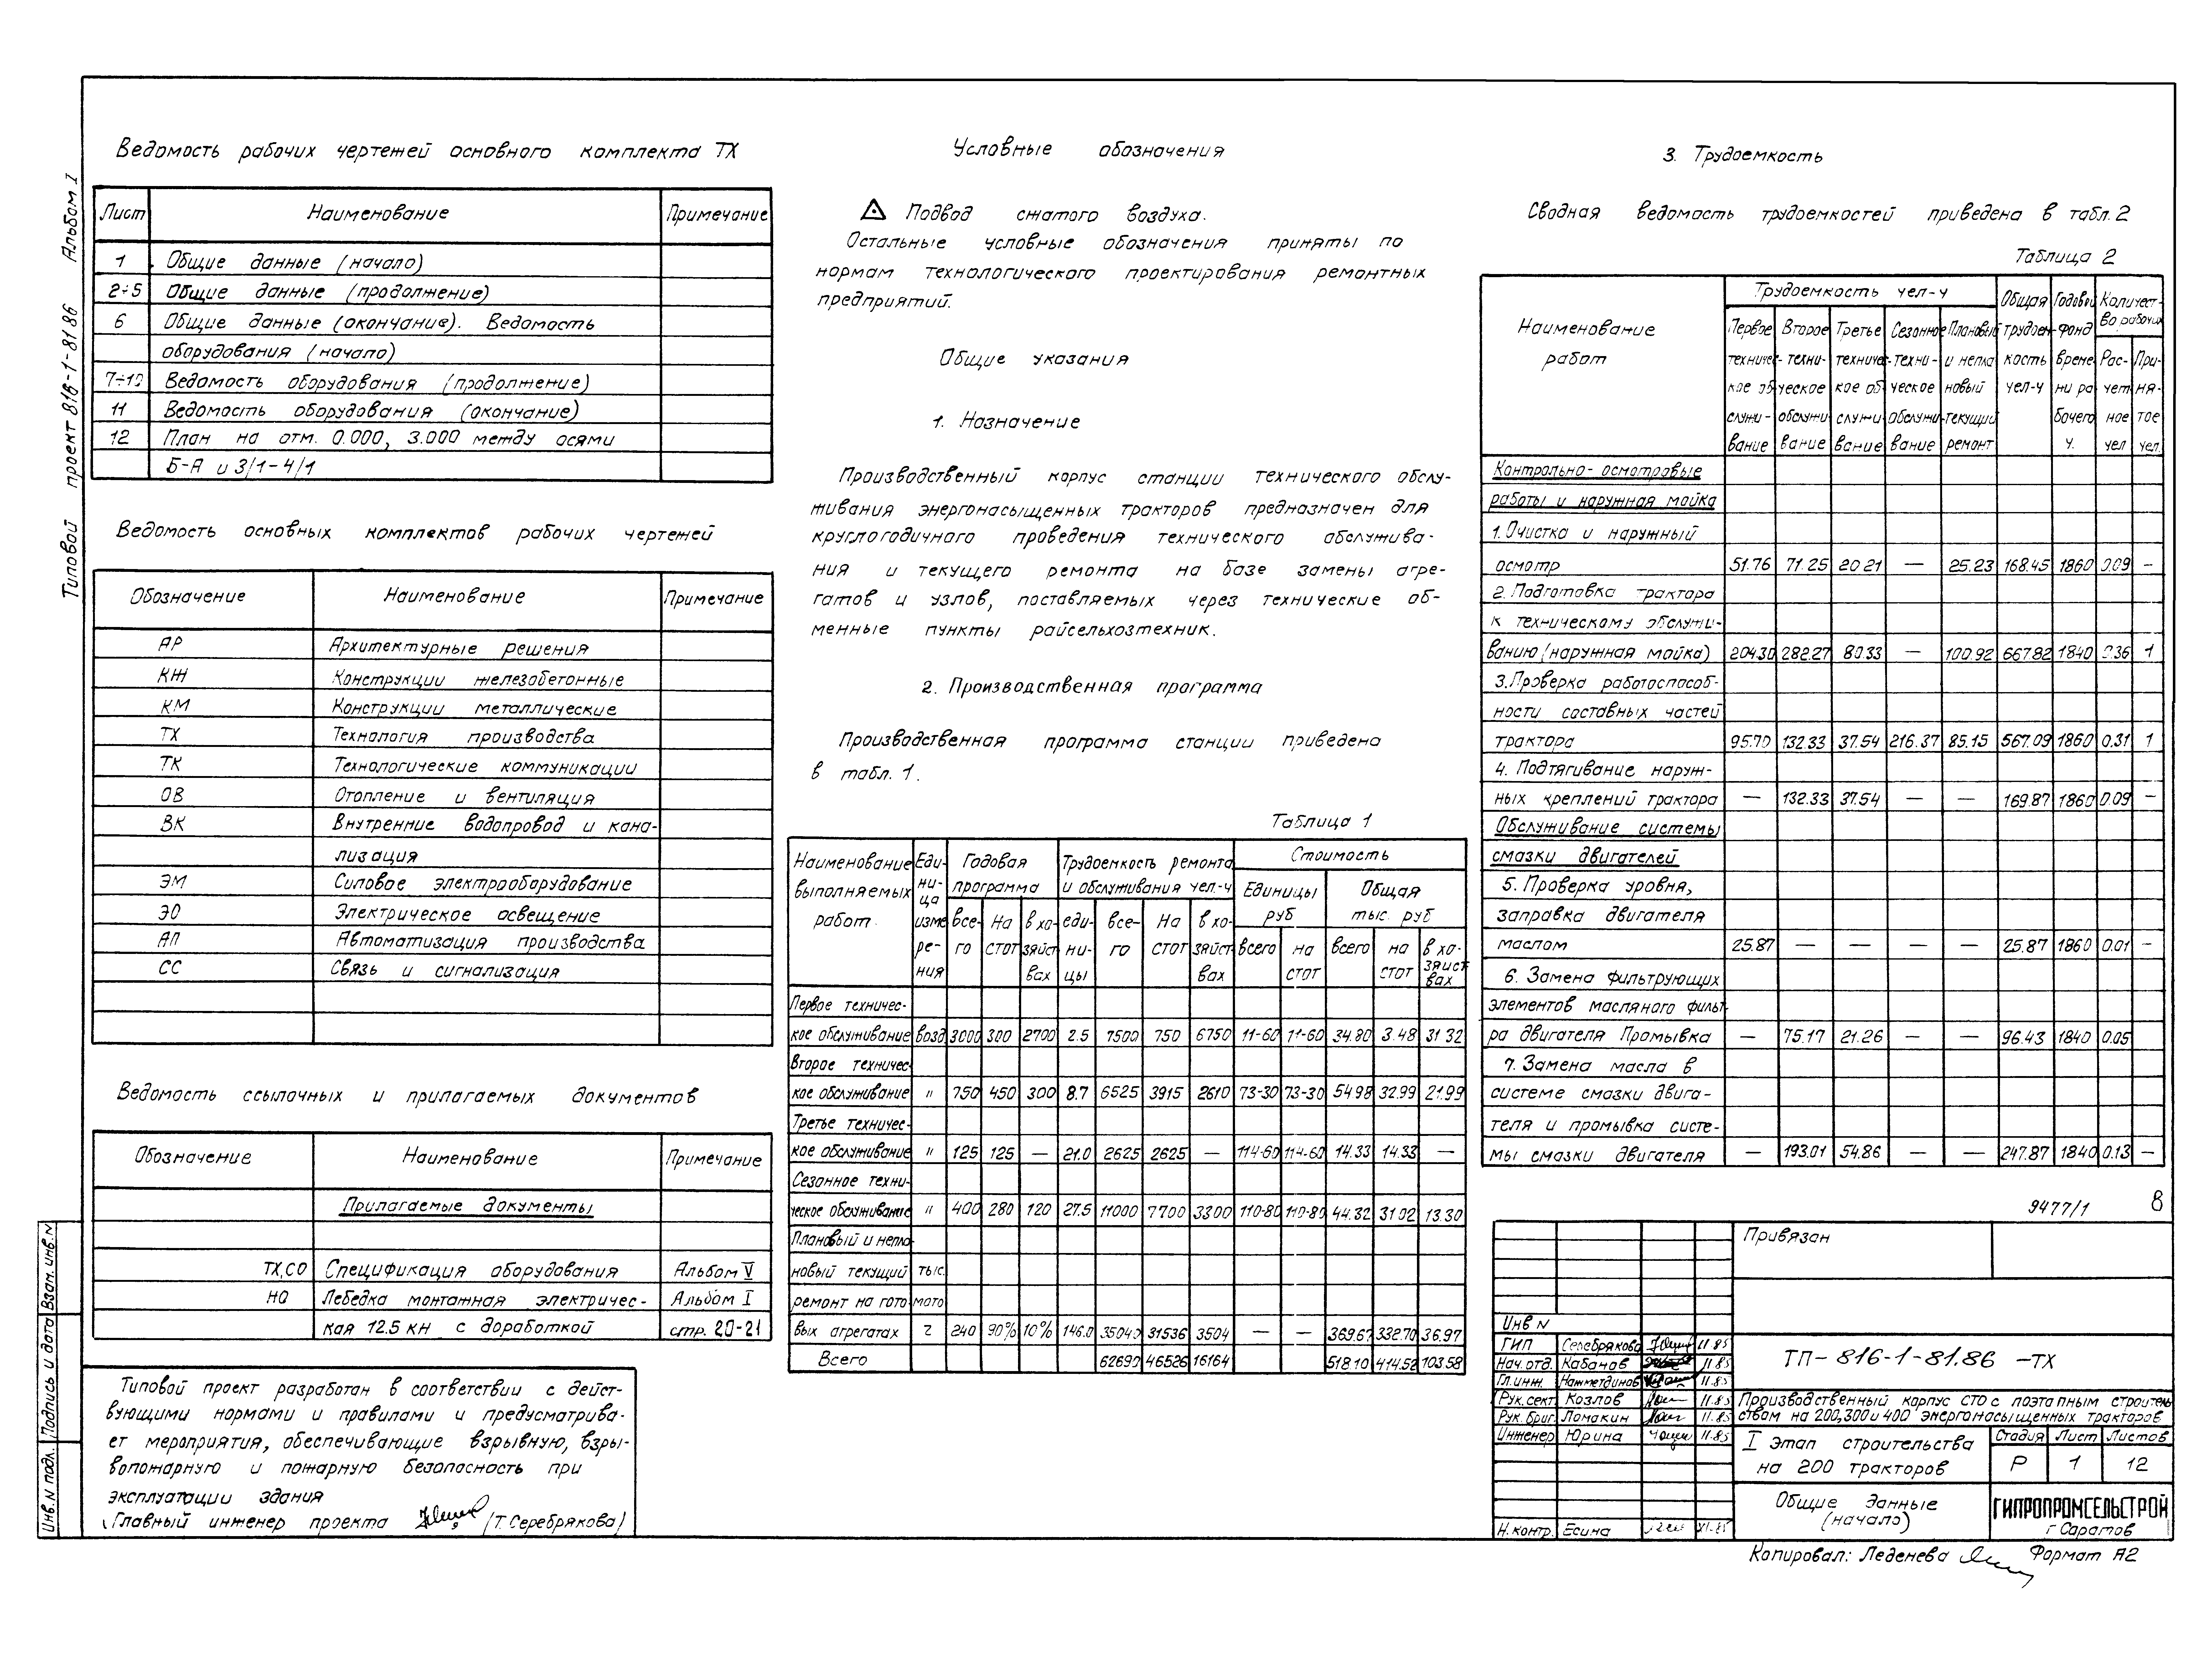 Типовой проект 816-1-8186 Альбом I
Ведомость рабочих чертежей основного комплекта ТХ
Лист Наименование Примечание
1 Общие данные (начало)
2÷5 Общие данные (продолжение)
6 Общие данные (окончание). Ведомость
оборудования (начало)
7÷10 Ведомость оборудования (продолжение)
11 Ведомость оборудования (окончание)
12 План на отм. 0.000, 3.000 между осями
Б-А и 3/1-4/1
Ведомость основных комплектов рабочих чертежей
Обозначение Наименование Примечание
АР Архитектурные решения
КЖ Конструкции железобетонные
КМ Конструкции металлические
ТХ Технология производства
ТК Технологические коммуникации
ОВ Отопление и вентиляция
ВК Внутренние водопровод и кана-
лизация
ЭМ Силовое электрооборудование
ЭО Электрическое освещение
АП Автоматизация производства
СС Связь и сигнализация
Ведомость ссылочных и прилагаемых документов
Обозначение Наименование Примечание
Прилагаемые документы
ТХ,СО Спецификация оборудования Альбом V
НО Лебедка монтажная электричес- Альбом I
кая 12.5 кн с доработкой стр. 20-21
Типовой проект разработан в соответствии с дейст-
вующими нормами и правилами и предусматрива-
ет мероприятия, обеспечивающие взрывную, взры-
вопожарную и пожарную безопасность при
эксплуатации здания
Главный инженер проекта (Т.Серебрякова)
Инв.N подл. Подпись и дата Взам. инв. N
Условные обозначения
Подвод сжатого воздуха.
Остальные условные обозначения приняты по
нормам технологического проектирования ремонтных
предприятий.
Общие указания
1. Назначение
Производственный корпус станции технического обслу-
живания энергонасыщенных тракторов предназначен для
круглогодичного проведения технического обслужива-
ния и текущего ремонта на базе замены агре-
гатов и узлов, поставляемых через технические об-
менные пункты райсельхозтехник.
2. Производственная программа
Производственная программа станции приведена
в табл. 1.
Таблица 1
Наименование выполняемых работ.
Единица измерения
Годовая программа
всего На СТОТ в хозяйствах
Трудоемкость ремонта и обслуживания чел-ч
единицы всего На СТОТ в хозяйствах
Стоимость
Единицы руб
всего на СТОТ
Общая тыс. руб
всего на СТОТ в хозяйствах
Первое техничес-
кое обслуживание возд 3000 300 2700 2.5 7500 750 6750 11-60 11-60 34.80 3.48 31.32
Второе техничес-
кое обслуживание " 750 450 300 8.7 6525 3915 2610 73-30 73-30 54.98 32.99 21.99
Третье техничес-
кое обслуживание " 125 125 — 21.0 2625 2625 — 114-60 114-60 14.33 14.33 —
Сезонное техни-
ческое обслуживание " 400 280 120 27.5 11000 7700 3300 110-80 110-80 44.32 31.02 13.30
Плановый и непла-
новый текущий тыс.
ремонт на гото- мото
вых агрегатах ч 240 90% 10% 146.0 35040 31536 3504 — — 369.67 332.70 36.97
Всего 62690 46526 16164 518.10 414.52 103.58
3. Трудоемкость
Сводная ведомость трудоемкостей приведена в табл. 2
Таблица 2
Наименование работ
Трудоемкость чел-ч
Первое техническое обслуживание
Второе техническое обслуживание
Третье техническое обслуживание
Сезонное техническое обслуживание
Плановый и неплановый текущий ремонт
Общая трудоемкость чел-ч
Годовой фонд времени рабочего ч.
Количество рабочих
Расчетное чел
Принятое чел.
Контрольно-осмотровые
работы и наружная мойка
1. Очистка и наружный
осмотр 51.76 71.25 20.21 — 25.23 168.45 1860 0.09 -
2. Подготовка трактора
к техническому обслужи-
ванию (наружная мойка) 204.30 282.27 80.33 — 100.92 667.82 1840 0.36 1
3. Проверка работоспособ-
ности составных частей
трактора 95.70 132.33 37.54 216.37 85.15 567.09 1860 0.31 1
4. Подтягивание наруж-
ных креплений трактора — 132.33 37.54 — — 169.87 1860 0.09 -
Обслуживание системы
смазки двигателей
5. Проверка уровня,
заправка двигателя
маслом 25.87 — — — — 25.87 1860 0.01 -
6. Замена фильтрующих
элементов масляного фильт-
ра двигателя Промывка — 75.17 21.26 — — 96.43 1840 0.05
7. Замена масла в
системе смазки двига-
теля и промывка систе-
мы смазки двигателя — 193.01 54.86 — — 247.87 1840 0.13 -
9477/1 8
Привязан
Инв N
ГИП Серебрякова 11.85
Нач. отд. Кабанов 11.85
Гл.инж. Нажметдинов 11.85
Рук.сект. Козлов 11.85
Рук.бриг. Ломакин 11.85
Инженер Юрина 11.85
Н.контр. Есина
ТП-816-1-81.86 -ТХ
Производственный корпус СТО с поэтапным строитель
ством на 200,300 и 400 энергонасыщенных тракторов
I этап строительства
на 200 тракторов
Стадия Лист Листов
Р 1 12
Общие данные
(начало)
ГИПРОПРОМСЕЛЬСТРОЙ
г Саратов
Копировал: Леденева Формат А2